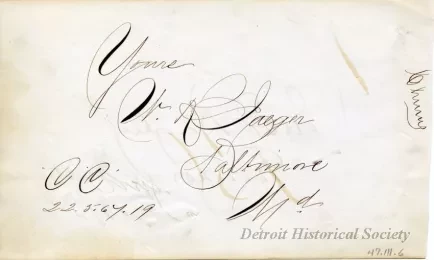 Yours
W. R. Jaeger
Baltimore
Md
C. C.
22.5.67.19
Detroit Historical Society
47.111.6